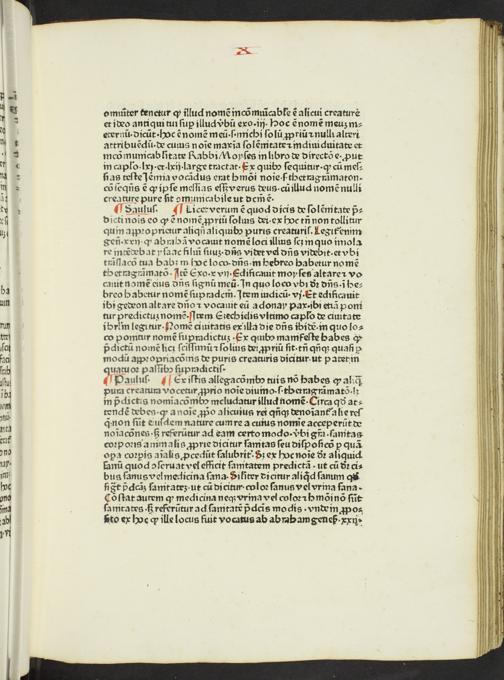 X
omniter tenetur qꝫ illud nomē incōmūicabile ē alicui creature
et ideo antiqui tui sup illud ꝟbū exo. iij. Hoc ē nomē meū; in
eternū. dicūt. hoc ē nomē meū. s. michi soli ꝓpriū ⁊ nulli alteri
attribuēdū. de cuius noie maxia solēnitate ⁊ indiuiduitate et
incōmunicabilitate Rabbi Moyses in libro de directōe. ꝓut
in capło. lxj. et. lxij. large tractat. Ex quibꝫ sequitur. qꝫ cū mes-
sias teste Jeremia vocādus erat hmōi noie. s. thetragrāmaton.
cōseqñs ē qꝫ ipse messias esset verus deus. cū illud nomē nulli
creature pure sit cōmunicabile vt dcm̄ ē.
¶ Saulus. ¶ Licet verum ē quod dicis de solēnitate p̄-
dicti nois eo qꝫ ē nomē ꝓpriū solius dei. ex hoc tñ non tollitur
quin appropriet aliqñ aliquibꝫ puris creaturis. Legit enim
gen. xxij. qꝫ abrahā vocauit nomē loci illius scꝫ in quo imola
re intēdebat ysaac filiū suū. dñs videt vel dñs videbit. et vbi
trāslacō tua habꝫ in hoc loco. dñs. in hebreo habetur nomē
thetragrāmatō. Itē Exo. xvij. Edificauit moyses altare ⁊ vo
cauit nomē eius dñs signū meū. In quo loco vbi dꝛ dñs. i he-
breo habetur nomē supradcm̄. Item iudicū. vj. Et edificauit
ibi gedeon altare dño ⁊ vocauit eū adonay pax. ibi etiā poni
tur predictuꝫ nomē. Item Ezechielis vltimo capło de ciuitate
ihrlm legitur. Nomē ciuitatis ex illa die dñs ibidē. in quo lo-
co ponitur nomē supradictuꝫ. Ex quibꝫ manifeste habes qꝫ
p̄dictū nomē licꝫ scissimū ⁊ solius dei ꝓpriū sit. tñ qñqꝫ quasi ꝑ
modū appropriacōis de puris creaturis dicitur. vt patet in
quatuor passibꝫ supradictis.
¶ Paulus. ¶ Ex istis allegacōibꝫ tuis nō habes qꝫ aliqꝫ
pura creatura vocetur ꝓprio noie diuino. s. thetragrāmatō. lꝫ
in p̄dictis noiacōibꝫ includatur illud nomē. Circa qd̄ at-
tendē debes. qꝫ a noie ꝓprio alicuius rei qñqꝫ denoiant alie res
q̄ non sūt eiusdem nature cum re a cuius nomie acceperūt de-
noiacōnes. sꝫ referūtur ad eam certo modo. ꝟbi gra. sanitas
corporis animalis ꝓprie dicitur sanitas seu disposicō ꝑ quam
opa corpis aialis ꝓcedūt salubrit. Si ex hoc noie dꝛ aliquid
sanū quod ↄseruat vel efficit sanitatem predictā. vt cū dꝛ ci-
bus sanus vel medicina sana. Similiter dicitur aliqd sanum qd̄
sigt p̄dcāꝫ sanitateꝫ. vt cū dicitur. color sanus vel vrina sana.
Cōstat autem qꝫ medicina neqꝫ vrina vel color ⁊ hmōi nō sūnt
sanitates. sꝫ referūtur ad sanitatē p̄dcis modis. vnde in ꝓpo-
sito ex hoc qꝫ ille locus fuit vocatus ab abraham genes. xxij.